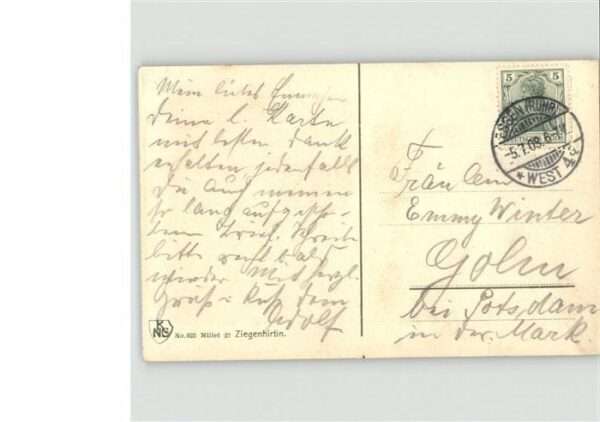 Mein liebes
Deine l. Karte
mit bestem Dank
erhalten jedenfalls
Du auf meinen
so lang aufgescho-
benen Brief. Schreibe
bitte recht bald
wieder. Mit herzl.
Gruß u Kuß Dein
Adolf
KNG
No. 622 Millet (2) Ziegenhirtin.
5 5
ESSEN (RUHR)
-5.7.09.6-
* WEST 4c
Fräulein
Emmy Winter
Golm
bei Potsdam
in der Mark.